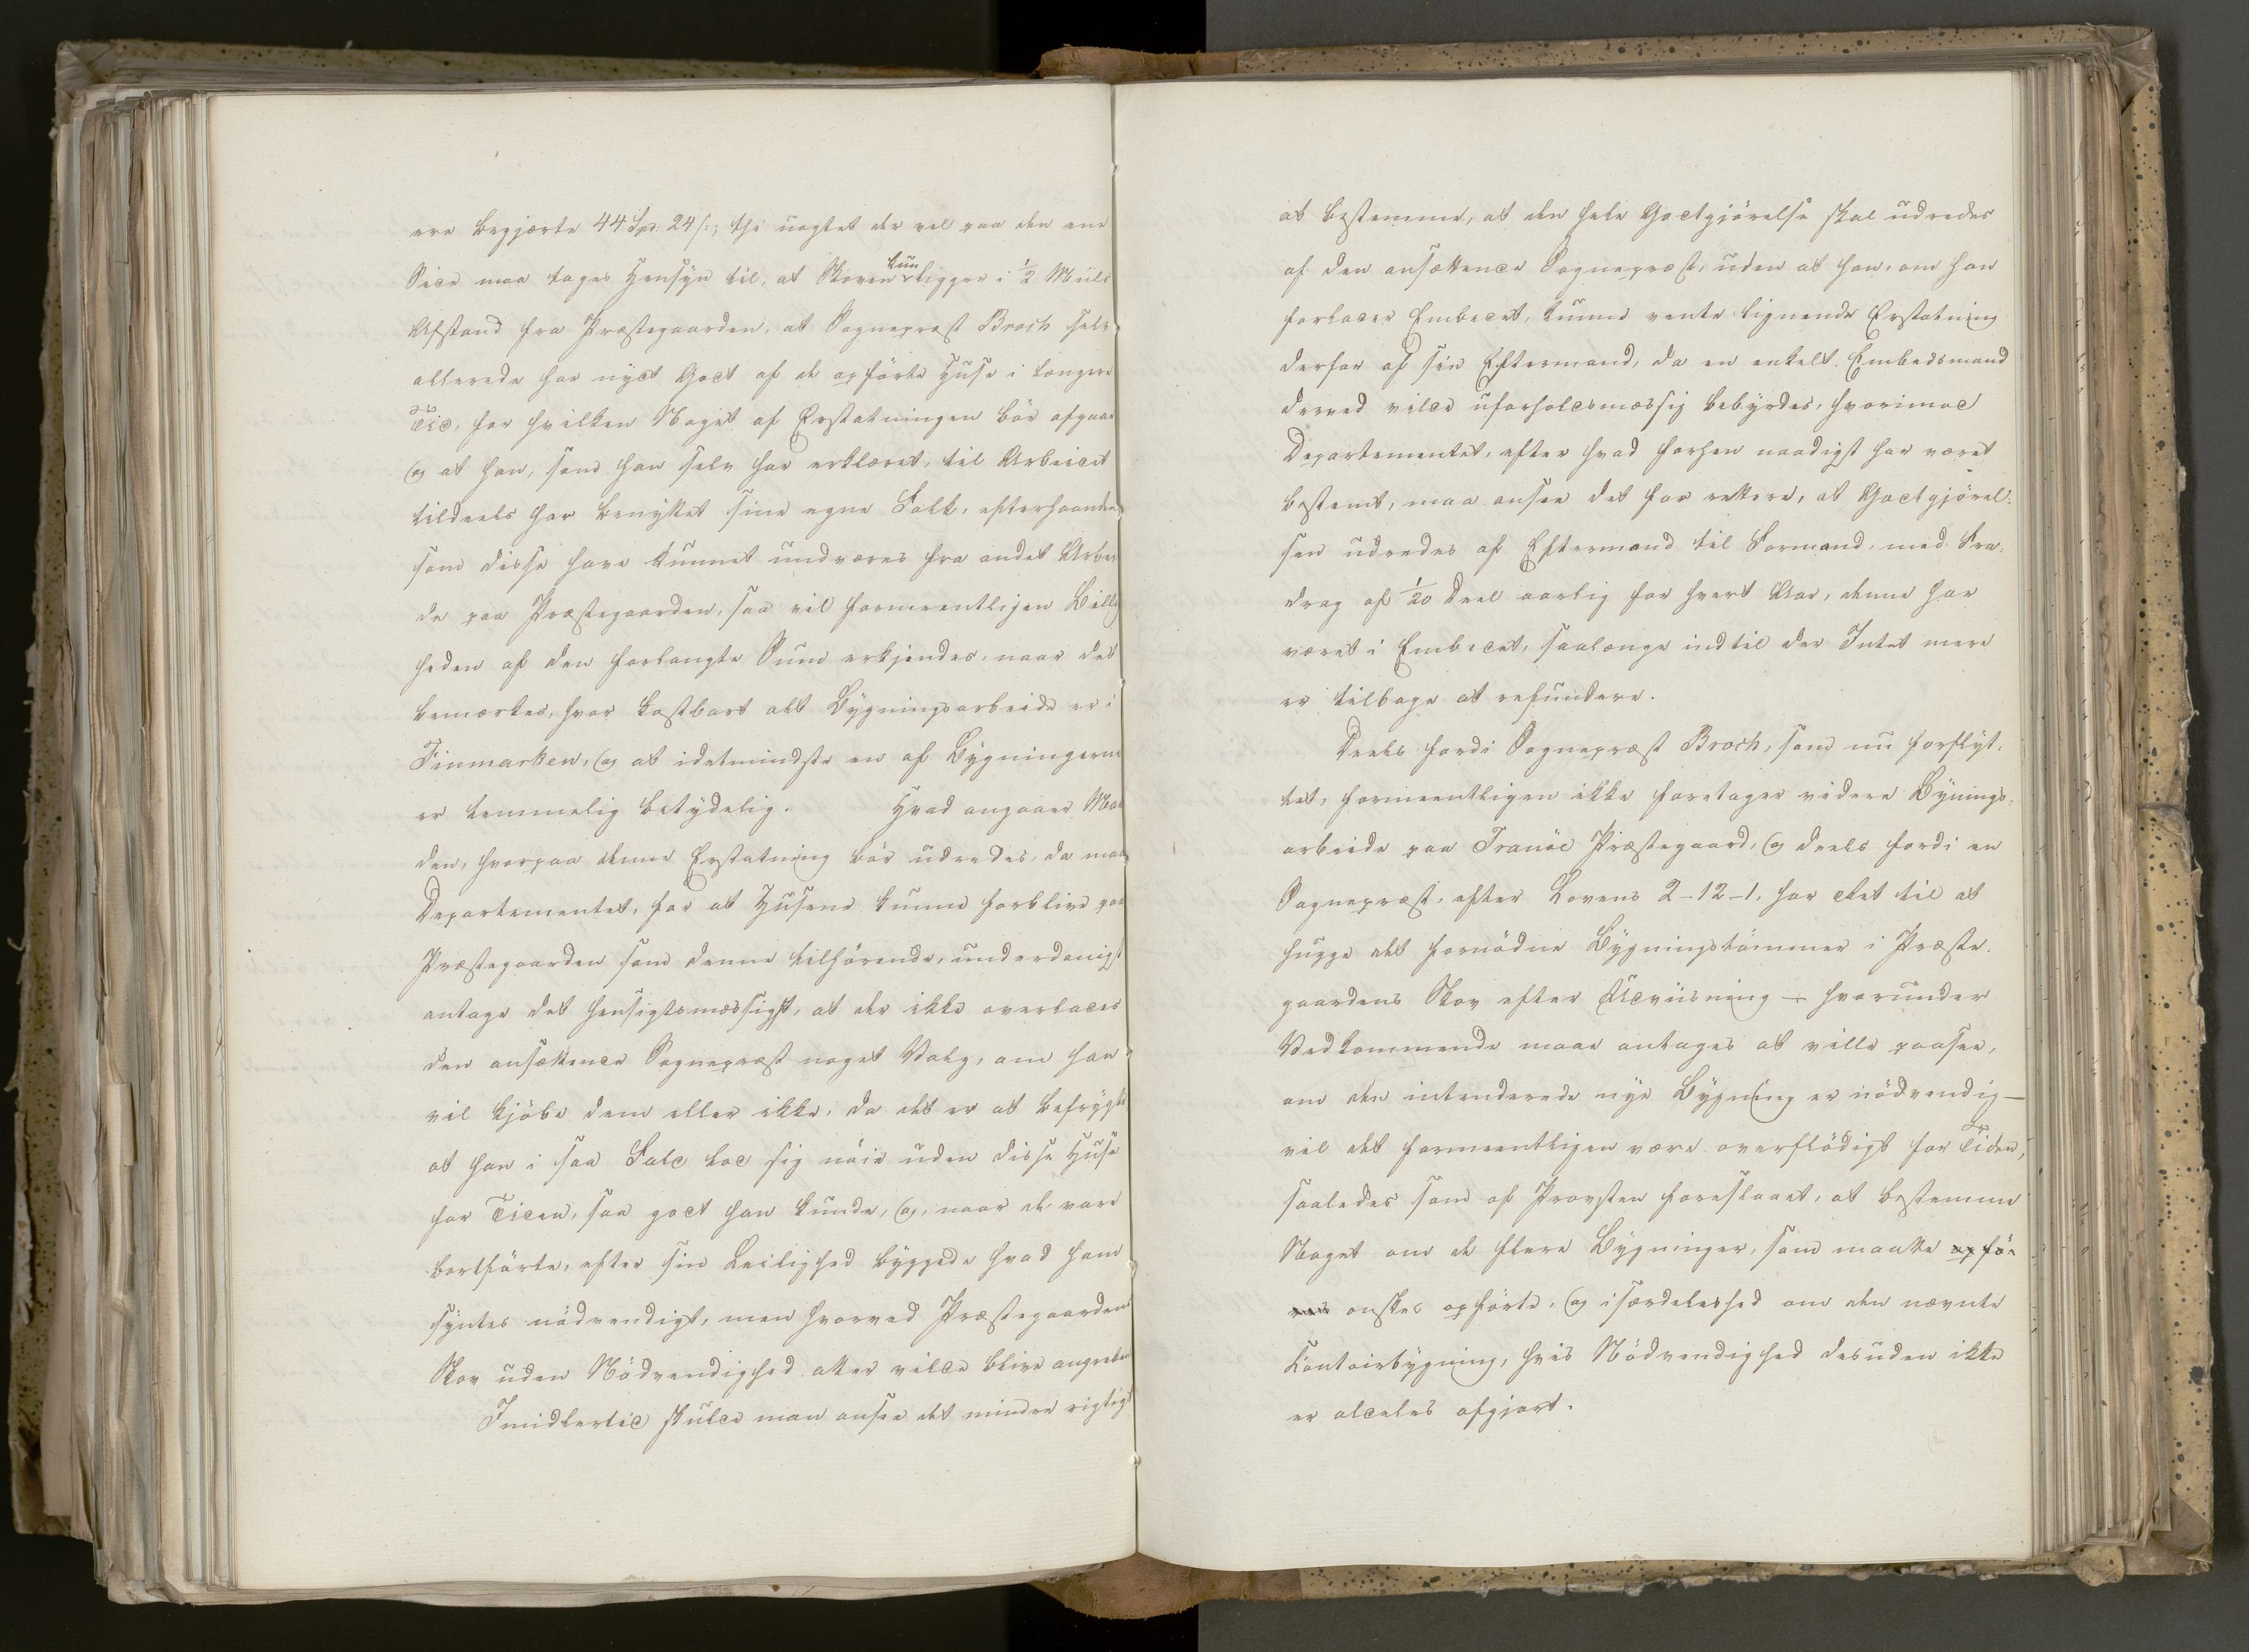 ere begjærte 44 Spd. 24 s:; thi uagtet der vel paa den ene
Side maa tages Hensyn til, at Skoven kun ligger i ½ Miils
Afstand fra Præstegaarden, at Sognepræst Broch selv
allerede har nydt Godt af de opførte Huse i længere
Tid, for hvilken Noget af Erstatningen bør afgaae
og at han, som han selv har erklæret, til Arbeidet
tildeels har benyttet sine egne Folk, efterhaanden
som disse have kunnet undværes fra andet Arbei
de paa Præstegaarden, saa vil formeentligen Billig
heden af den forlangte Sum erkjendes, naar det
bemærkes, hvor kostbart alt Bygningsarbeide er i
Finmarken, og at idetmindste en af Bygningerne
er temmelig betydelig. Hvad angaaer Maa
den, hvorpaa denne Erstatning bør udredes, da maa
Departementet, for at Husene kunne forblive paa
Præstegaarden som denne tilhørende, underdanigst
antage det hensigtsmæssigst, at der ikke overlades
den ansættende Sognepræst noget Valg, om han
vil kjøbe dem eller ikke, da det er at befrygte
at han i saa Fald lod sig nøie uden disse Huse
for Tiden, saa godt han kunde, og, naar de vare
bortførte, efter sin Leilighed byggede hvad ham
syntes nødvendigt, men hvorved Præstegaardens
Skov uden Nødvendighed atter vilde blive angreben
Imidlertid skulde man ansee det mindre rigtigt
at bestemme, at den hele Godtgjørelse skal udredes
af den ansættende Sognepræst, uden at han, om han
forlader Embedet, kunne vente lignende Erstatning
derfor af sin Eftermand, da en enkelt Embedsmand
derved vilde uforholdsmæssig bebyrdes, hvorimod
Departementet, efter hvad forhen naadigst har været
bestemt, maa ansee det for rettere, at Godtgjørel-
sen udredes af Eftermand til Formand, med Fra-
drag af 1/20 Deel aarlig for hvert Aar, denne har
været i Embedet, saalænge indtil der Intet mere
er tilbage at refundere.
Deels fordi Sognepræst Broch, som nu forflyt-
tet, formeentligen ikke foretager videre Bynings-
arbeide paa Tranøe Præstegaard, og deels fordi en
Sognepræst, efter Lovens 2-12-1, har Ret til at
hugge det fornødne Bygningstømmer i Præste-
gaardens Skov efter Udviisning – hvorunder
Vedkommende maae antages at ville paasee,
om den intenderede nye Bygning er nødvendig –
vil det formeentligen være overflødigt for Tiden,
saaledes som af Provsten foreslaaet, at bestemme
Noget om de flere Bygninger, som maatte opfø-
res ønskes opførte, og isærdeleshed om den nævnte
Contoirbygning, hvis Nødvendighed desuden ikke
er aldeles afgjort.